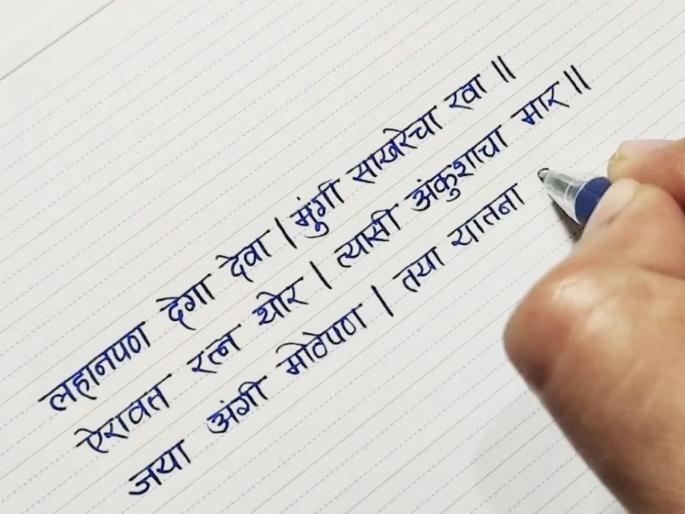 लहानपण देगा देवा | मुंगी साखरेचा रवा ||
ऐरावत रत्न थोर | त्यासी अंकुशाचा मार ||
जया अंगी मोठेपण | तया यातना